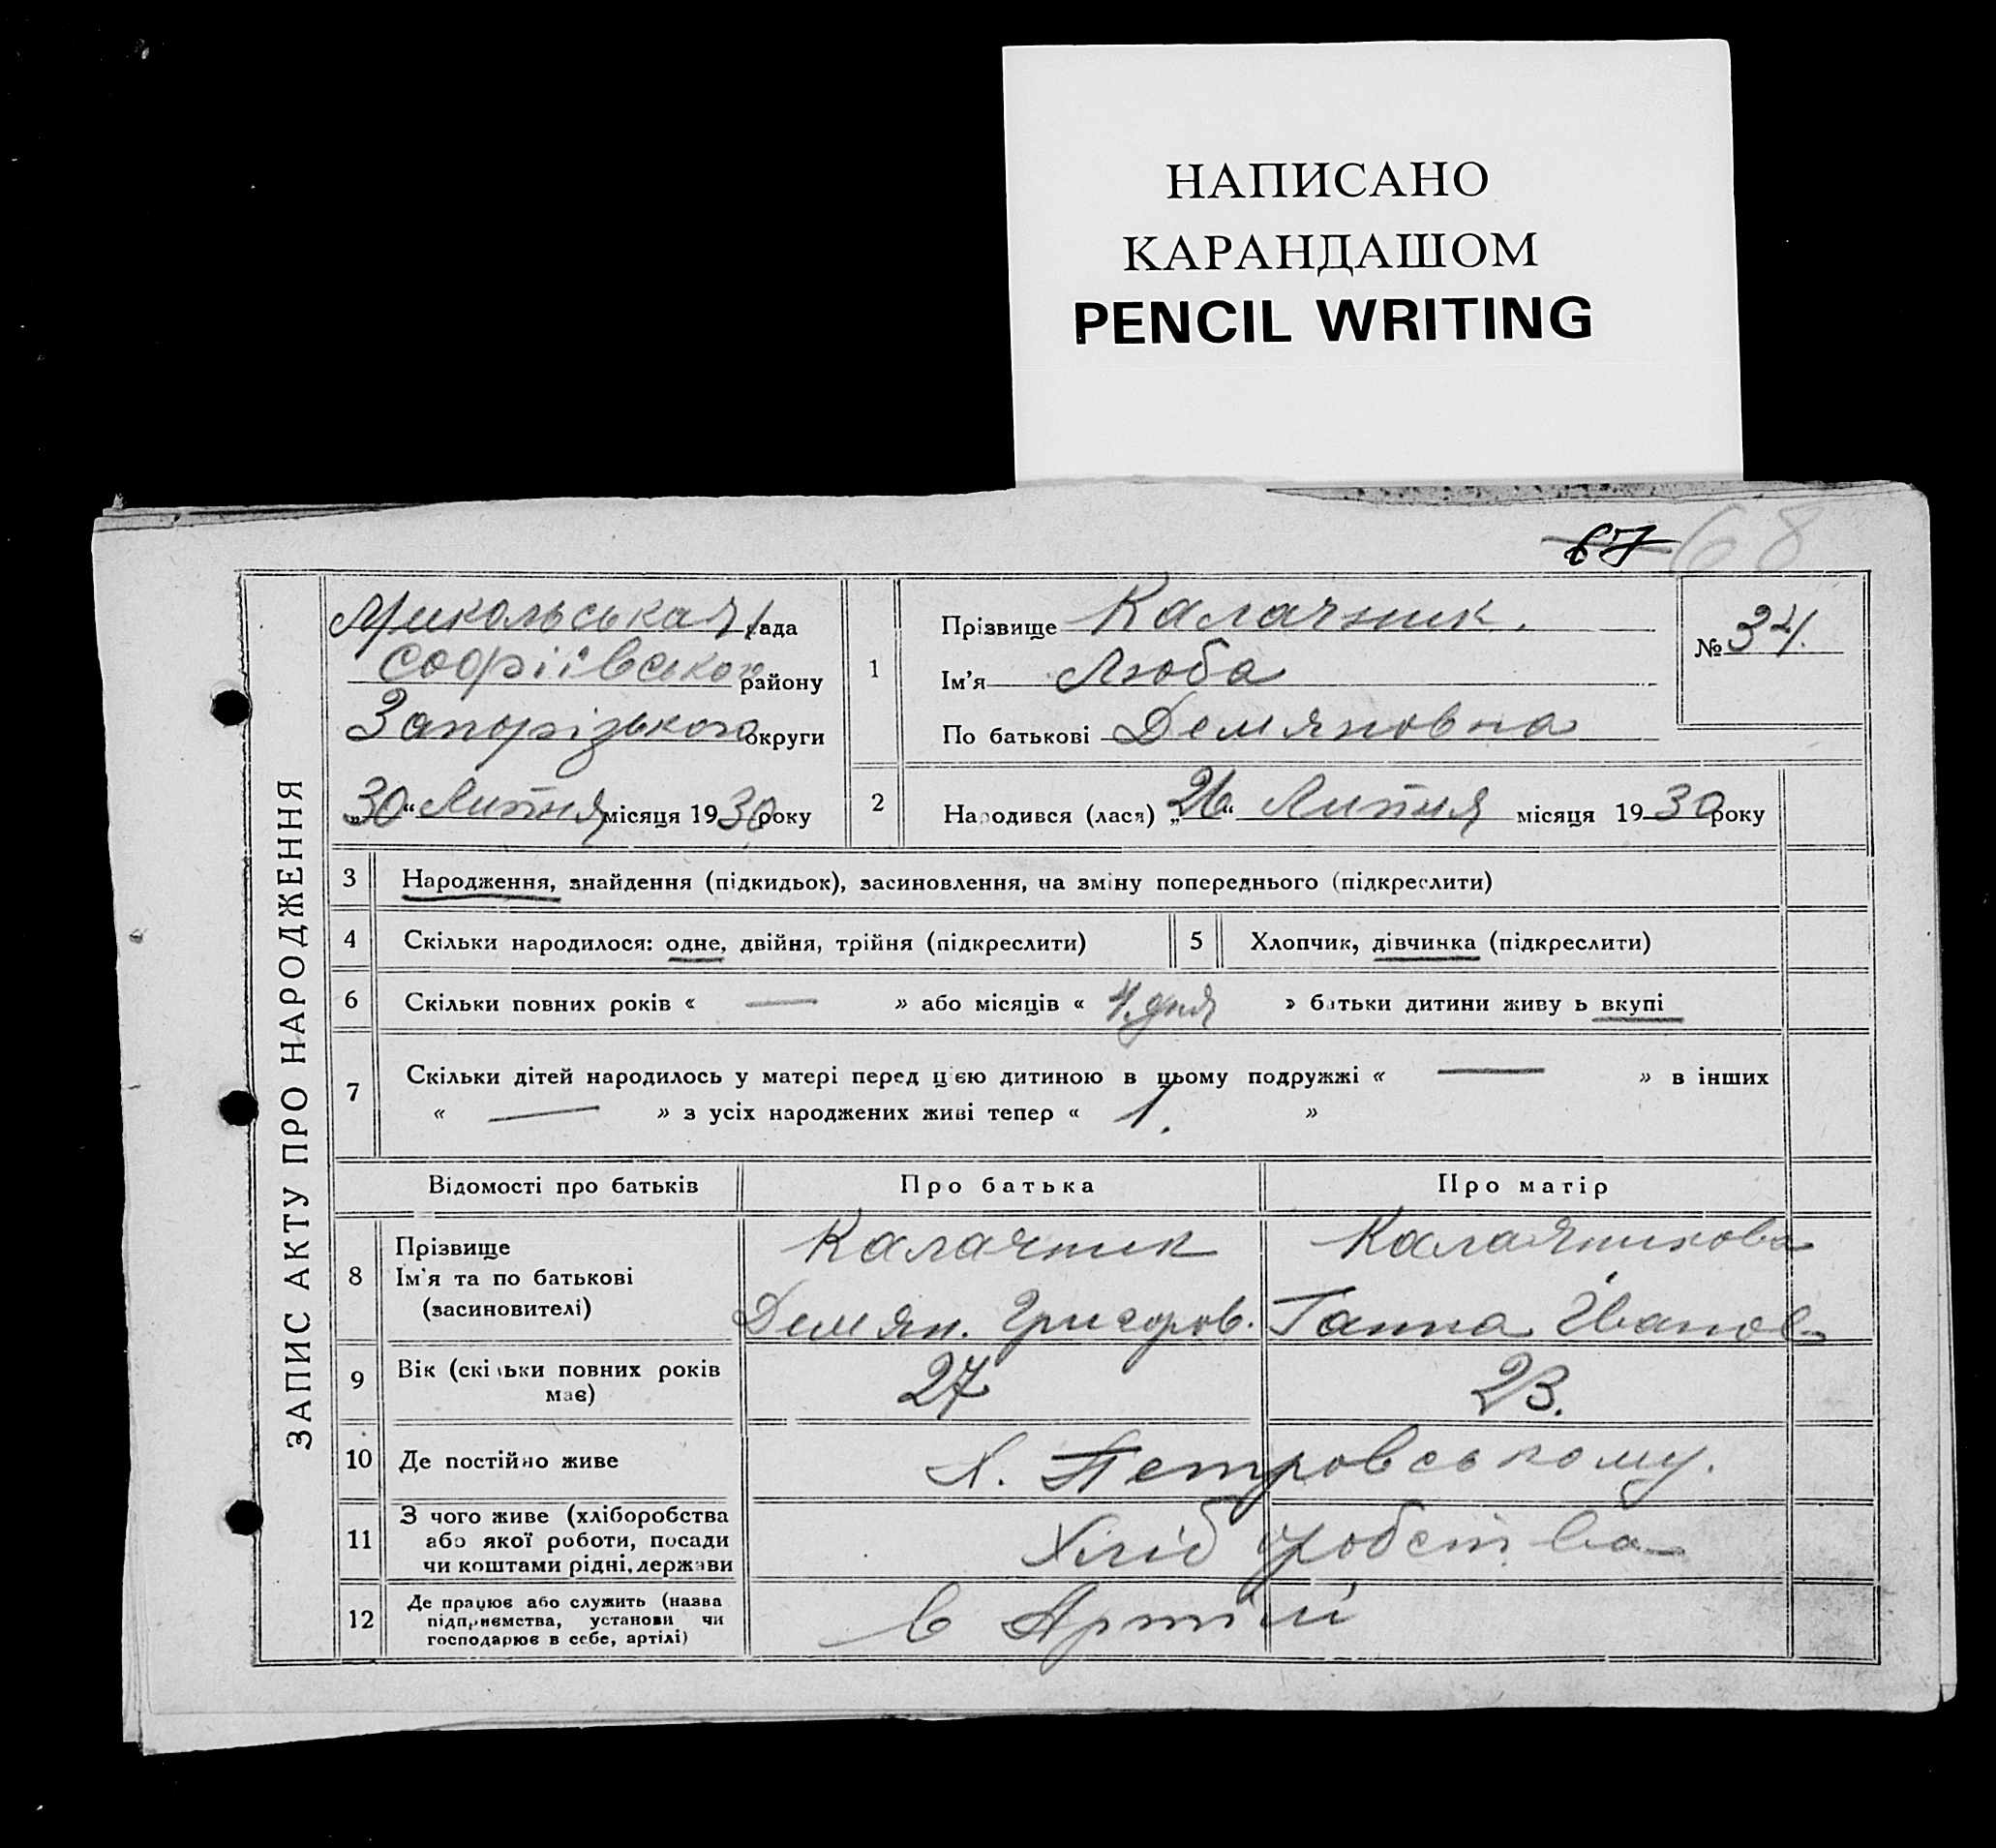 НАПИСАНО
КАРАНДАШОМ
PENCIL WRITING
67 68
ЗАПИС АКТУ ПРО НАРОДЖЕННЯ
Микольська рада
Софіівського району
Запорізького округи
„30“ Липня місяця 1930 року
1
Прізвище Калачник.
Ім'я Люба
По батькові Демяновна
№ 34.
2
Народився (лася) „26“ Липня місяця 1930 року
3 Народження, знайдення (підкидьок), засиновлення, на зміну попереднього (підкреслити)
4 Скільки народилося: одне, двійня, трійня (підкреслити) 5 Хлопчик, дівчинка (підкреслити)
6 Скільки повних років « — » або місяців « 4 дня » батьки дитини живу ь вкупі
7 Скільки дітей народилось у матері перед цією дитиною в цьому подружжі « — » в інших
« — » з усіх народжених живі тепер « 1. »
Відомості про батьків Про батька Про матір
8 Прізвище
Ім'я та по батькові
(засиновителі)
Калачник Калачникова
Демян. Григоров. Ганна Іванов
9 Вік (скільки повних років
має)
27 23.
10 Де постійно живе Х. Петровському.
11 З чого живе (хліборобства
або якої роботи, посади
чи коштами рідні, держави
Хліб робства
12 Де працює або служить (назва
підприємства, установи чи
господарює в себе, артілі)
в Артілі